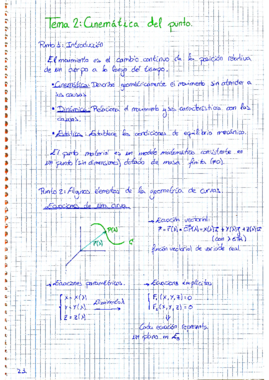 Tema 2: Cinemática del punto.
Punto 1: Introducción
El movimiento es el cambio continuo de la posición relativa
de un cuerpo a lo largo del tiempo.
• Cinemática: Describe geométricamente el movimiento sin atender a
las causas.
• Dinámica: Relaciona el movimiento y sus características con las
causas.
• Estática: Establece las condiciones de equilibrio mecánico.
El punto material es un modelo matemático consistente en
un punto (sin dimensiones) dotado de masa finita (≠0).
Punto 2: Algunos elementos de la geometría de curvas.
Ecuaciones de una curva
→ Ecuación vectorial:
P(λ)
(con λ∈ℝ)
función vectorial de variable real.
→ Ecuaciones paramétricas:
x = x(λ)
y = y(λ)
z = z(λ)
→ Ecuaciones implícitas
F₁(x,y,z) = 0
F₂(x,y,z) = 0
Cada ecuación representa
2.1